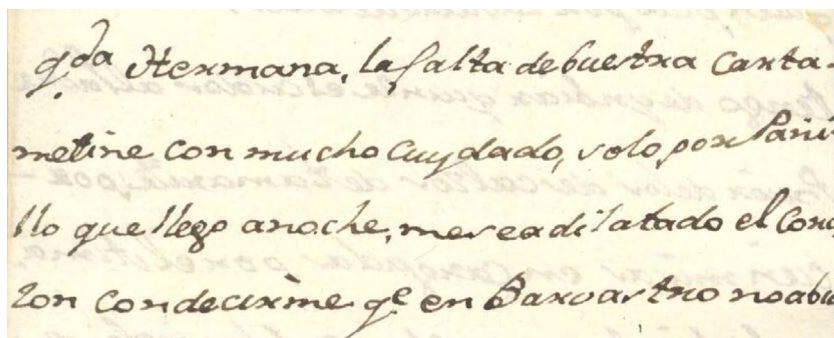 qda Hermana, la falta de buestra Carta
metine con mucho Cuydado, solo, por Pani
llo que llego anoche, mereadilatado el Cora
zon condecirme qe en Barvastro noabi